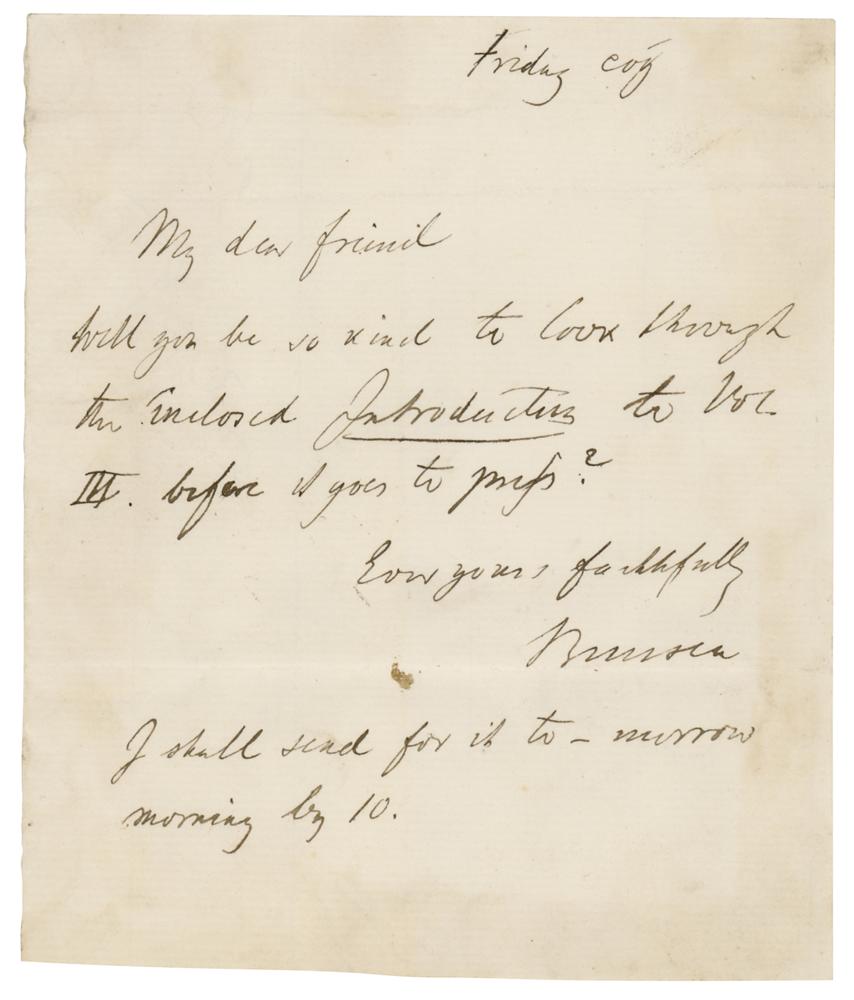 Friday evg
My dear friend
Will you be so kind to look through
the enclosed Introduction to Vol.
III. before it goes to press?
Ever yours faithfully
Bunsen
I shall send for it to-morrow
morning by 10.